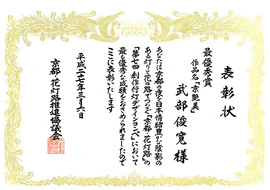 表彰状
最優秀賞
作品名「京艶美」
武部俊寛様
あなたは京都の夜を日本情緒豊かな陰影の
ある灯りと花の路でつなぐ「京都・花灯路」の
「第七回創作行灯デザインコンペ」において
最も優秀な成績をおさめられましたので
ここに表彰いたします
平成二十七年三月六日
京都・花灯路推進協議会